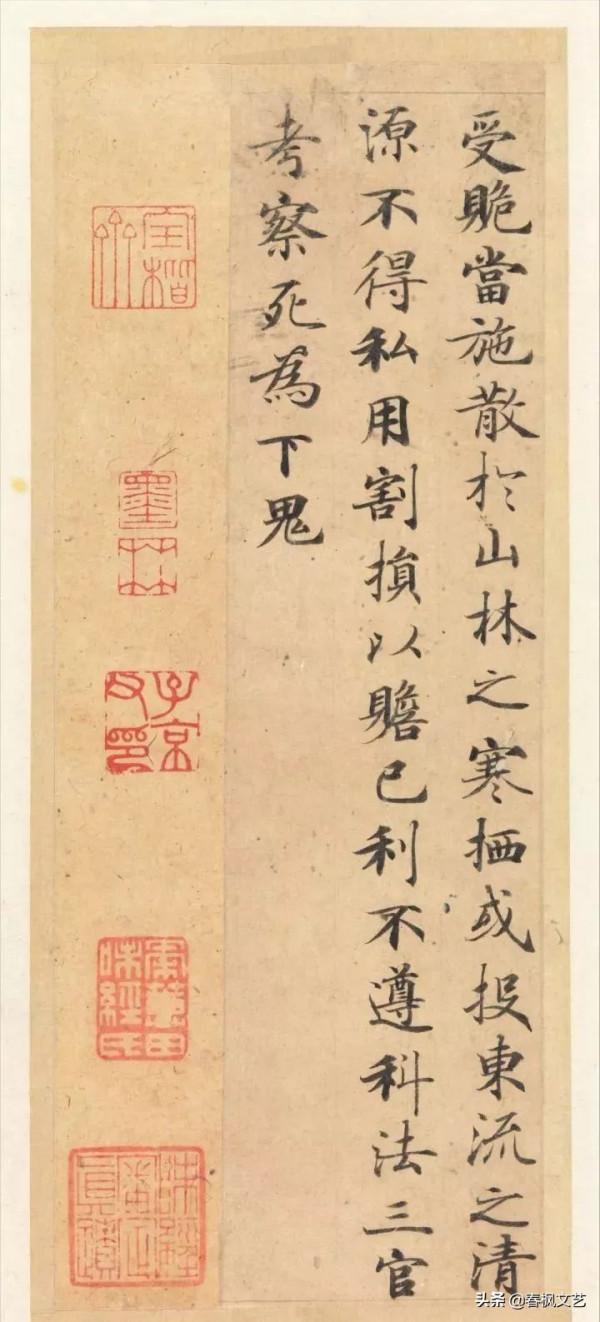 受賍當施散於山林之寒栖或投東流之清
源不得私用割損以贍己利不遵科法三官
考察死為下鬼
墨林
子京父印
頭条 @春枫文艺